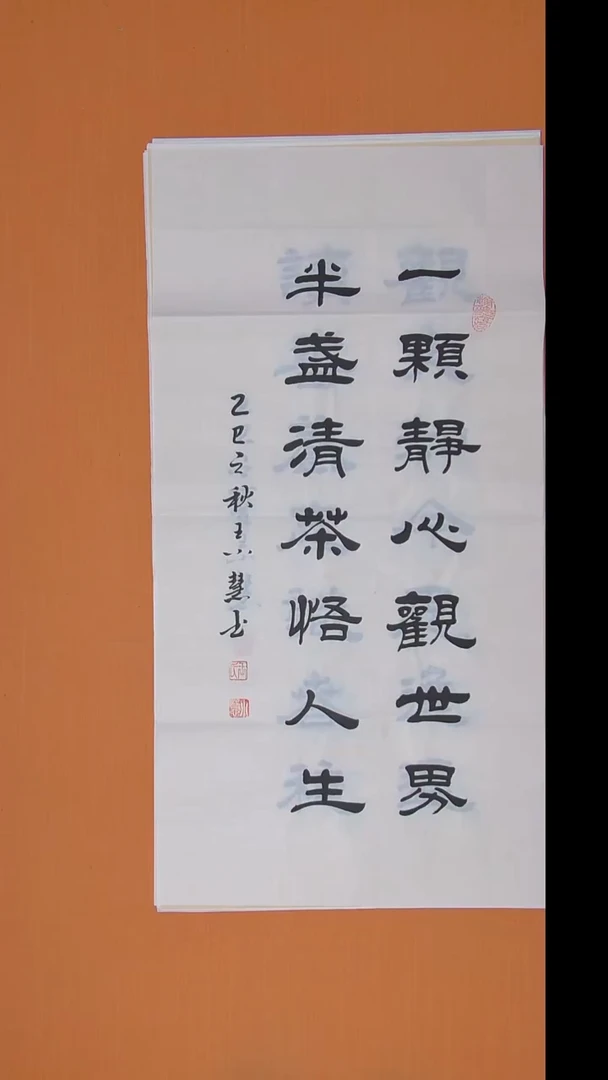 一顆靜心觀世界
半盏清茶悟人生
乙巳之秋王小慧书